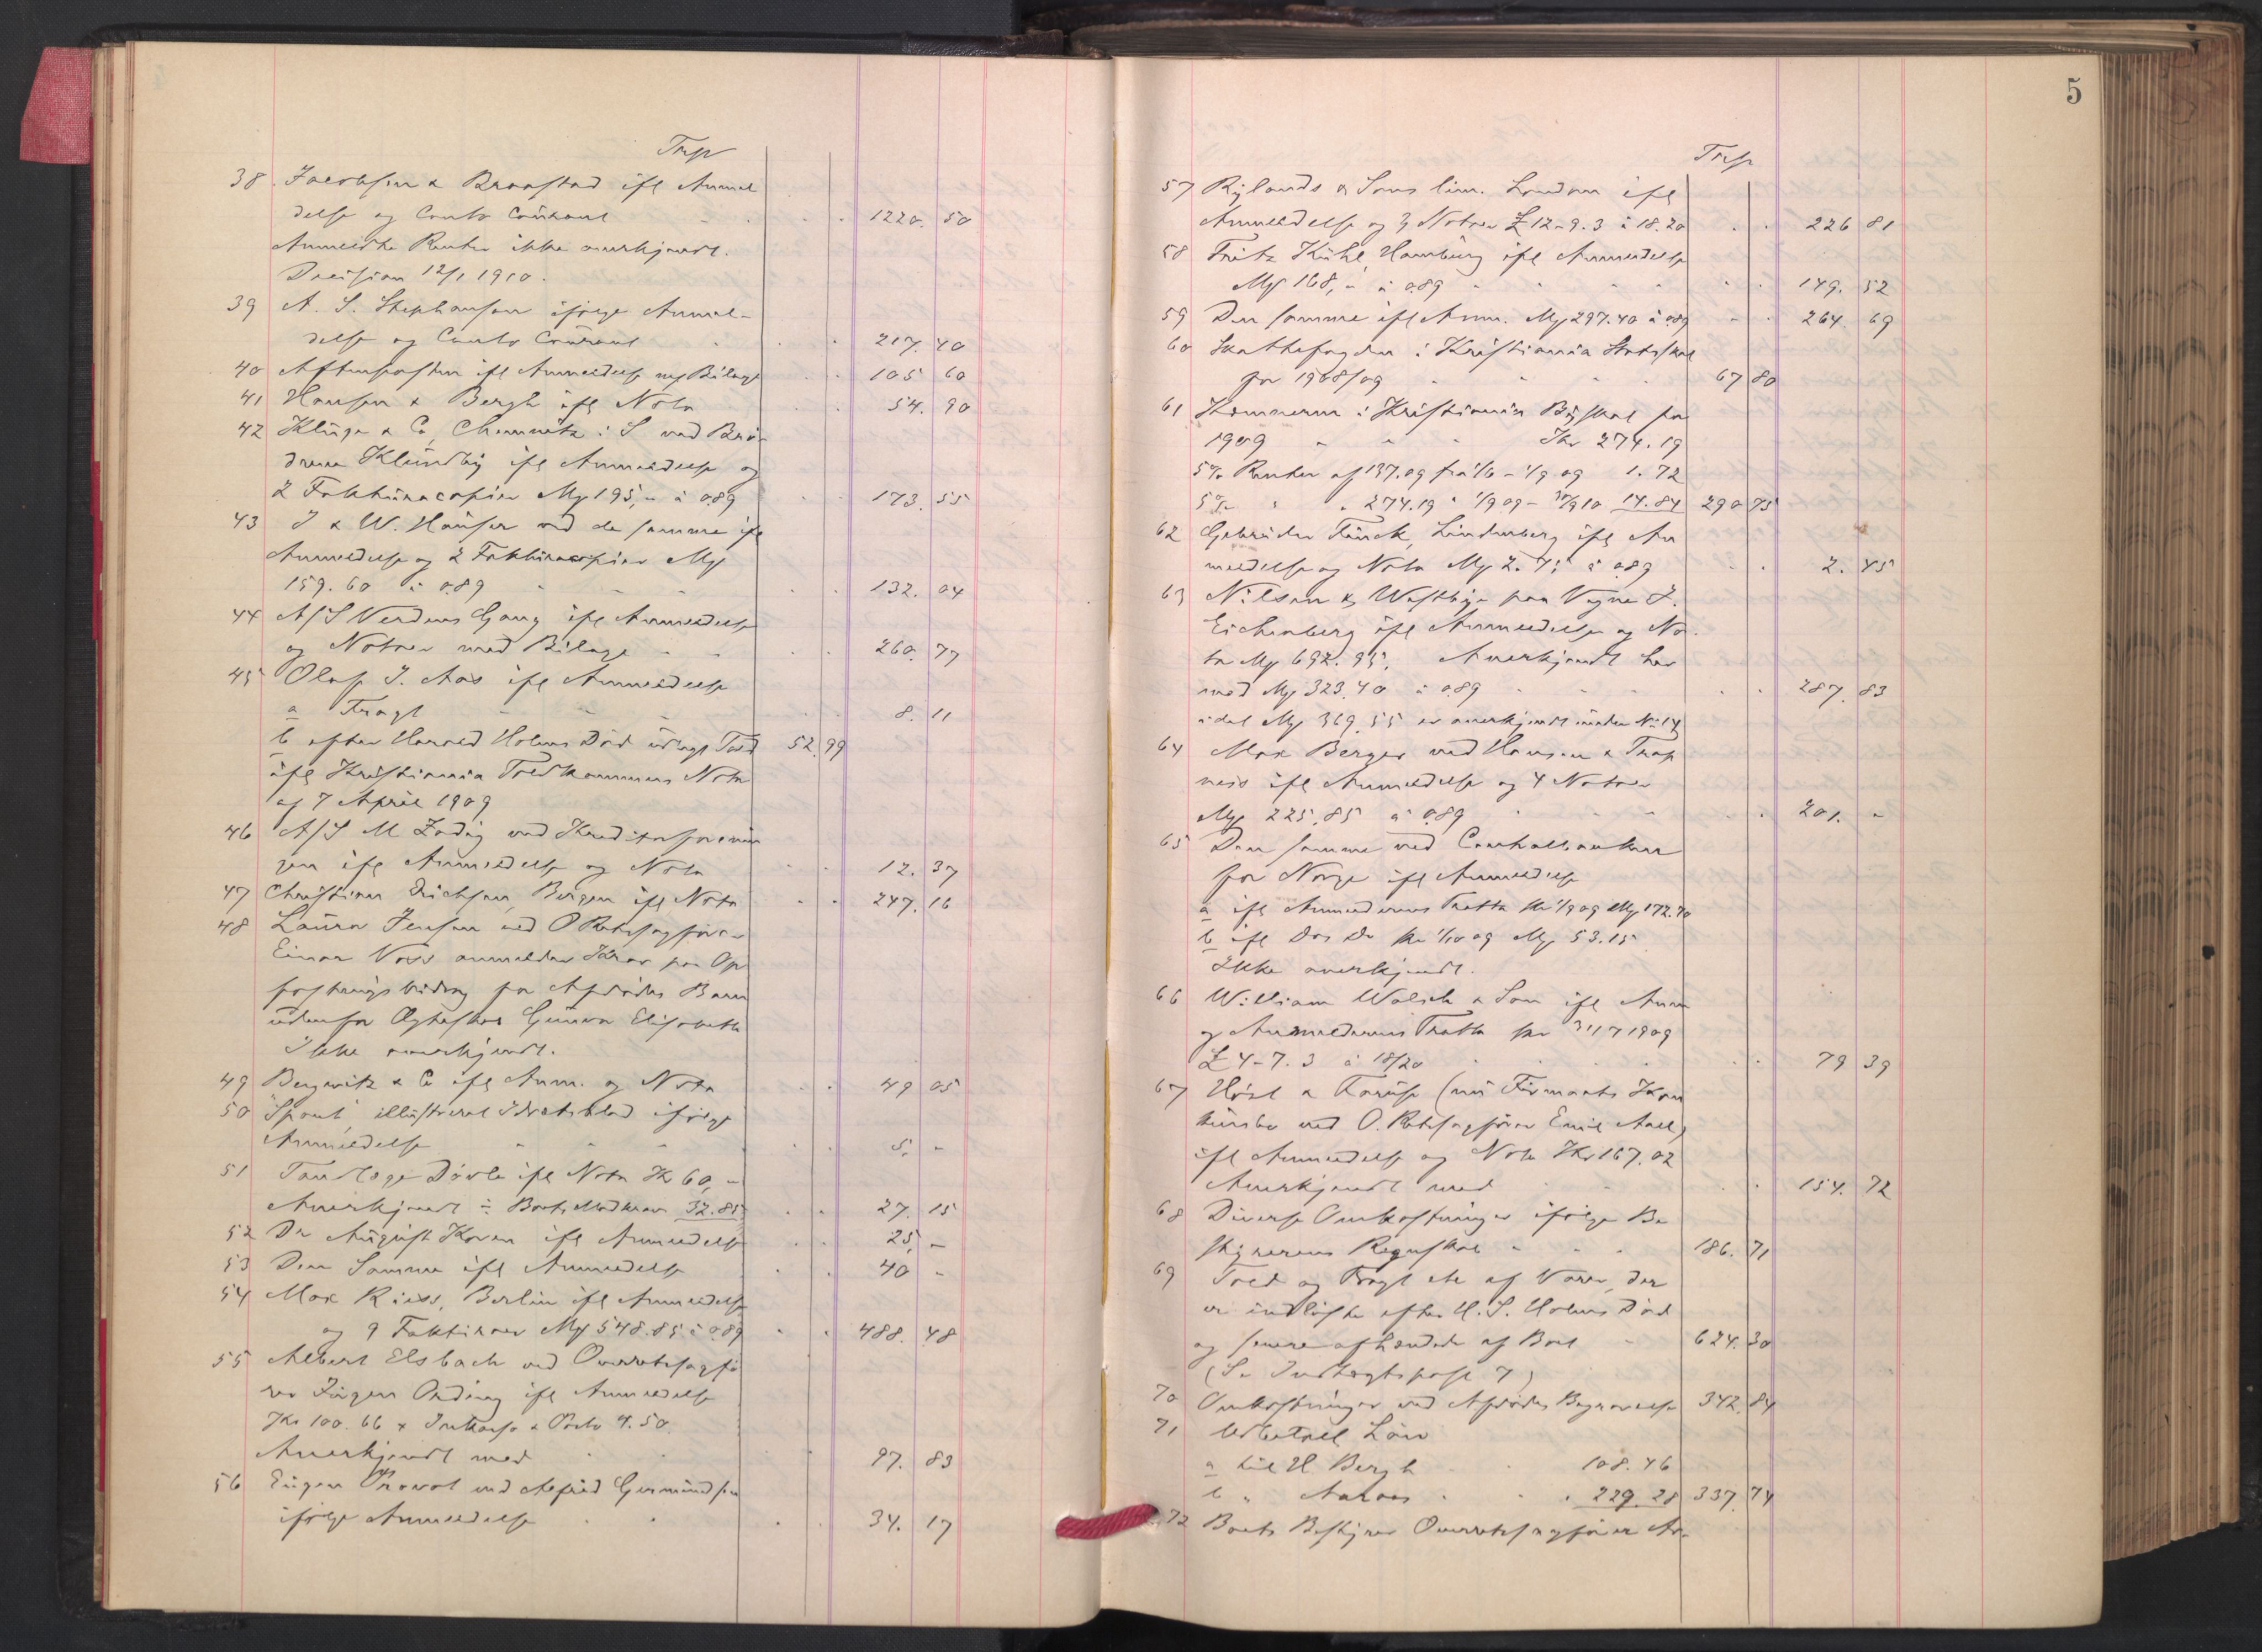 Trsp
38. Jacobsen & Braastad ifl Anmel
delse og Conto Courant 1220. 50
Anmeldte Renter ikke anerkjendt.
Decision 12/1 1910.
39 A. S. Stephansen ifølge Anmel-
delse og Conto Courant 217. 40
40 Aftenposten ifl Anmeldelse m/ Bilage 105 60
41 Hansen & Bergh ifl Nota 54. 90
42 Kluge & Co, Chemnitz i S ved Brø-
drene Klundby ifl Anmeldelse og
2 Fakturacopier Mk 195,- à 089 173. 55
43 J & W. Hauser ved de samme ifl
Anmeldelse og 2 Fakturacopier Mk
159. 60 à 089 132. 04
44 A/S Verdens Gang ifl Anmeldelse
og Notaer med Bilage 260. 77
45 Olaf J. Aas ifl Anmeldelse
a Fragt 8. 11
b efter Harald Holms Död udlagt Told 52. 99
ifl Kristiania Toldkammers Nota
af 7 April 1909
46 A/S M Zadig ved Kreditorforenin
gen ifl Anmeldelse og Nota 12. 37
47 Christian Erichsen, Bergen ifl Nota 247. 16
48 Laura Jensen ved O Retssagfører
Einar Voss anmelder Krav paa Op
fostringsbidrag for Afdödes Barn
udenfor Ægteskab Gunvor Elisabeth
Ikke anerkjendt.
49 Bergwitz & Co ifl Anm. og Nota 49 05
50 "Sport", illustreret Idrætsblad ifølge
Anmeldelse 5. -
51 Tandlæge Døvle ifl Nota Kr 60,-
Anerkjendt ÷ Boets Modkrav 32.85 27. 15
52 Dr August Koren ifl Anmeldelse 25, -
53 Den Samme ifl Anmeldelse 40 -
54 Max Riess, Berlin ifl Anmeldelse
og 9 Fakturaer Mk 548.85 à 089 488. 48
55 Albert Elsbach ved Overretssagfø
rer Jørgen Ording ifl Anmeldelse
Kr 100. 66 + Inkasso & Porto 4. 50.
Anerkjendt med 97. 83
56 Eugen Provot ved Gudmundsen
ifølge Anmeldelse 34. 17
5
Trsp
57 Rylands & Sons lim. London ifl
Anmeldelse og 3 Notaer £ 12-9. 3 à 18. 20 226 81
58 Fritz Kühl, Hamburg ifl Anmeldelse
Mk 168,- à 089 149. 52
59 Den samme ifl Anm. Mk 297. 40 à 089 264. 69
60 Skattefogden i Kristiania Statsskat
for 1908/09 67 80
61 Kemneren i Kristiania Byskat for
1909 Kr 274. 19
5% Renter af 137.09 fra 1/6 - 1/9 09 1. 72
5% " " 274.19 " 1/9 09 - 30/9 10 14. 84 290 75
62 Gebrüder Funck, Lindenberg ifl An
meldelse og Nota Mk 2. 75 à 089 2. 45
63 Nilsen & Westbye paa Vegne J.
Eichenberg ifl Anmeldelse og No-
ta Mk 692. 95. Anerkjendt her
med Mk 323. 40 à 089 287. 83
idet Mk 369. 55 er anerkjendt under No 14
64 Max Berger ved Hansen & Trap
ness ifl Anmeldelse og 4 Notaer
Mk 225, 85 à 089 201. -
65 Den samme ved Centralbanken
for Norge ifl Anmeldelse
a ifl Anmelderens Tratta pr 1/9 09 Mk 172.70
b ifl Do Do pr 1/10 09 Mk 53. 15
Ikke anerkjendt.
66 William Walsh & Son ifl Anm
og Anmelderens Tratta pr 31/7 1909
£ 4-7. 3 à 18/20 79 39
67 Höst & Faruse (nu Firmaets Kon
kursbo ved O. Retssagfører Emil Aall)
ifl Anmeldelse og Nota Kr 167. 02
Anerkjendt med 154. 72
68 Diverse Omkostninger ifølge Be
styrerens Regnskab 186. 71
69 Told og Fragt etc af Varer, der
er indløste efter H. S. Holms Död
og senere afhændede af Boet 624. 30
(Se Indtægtspost 7)
70 Omkostninger ved Afdödes Begravelse 342. 84
71 Udbetalt Lön
a til H Bergh 108. 46
b " Aanæs 229. 28 337. 74
72 Boets Bestyrer Overretssagfører Ar-